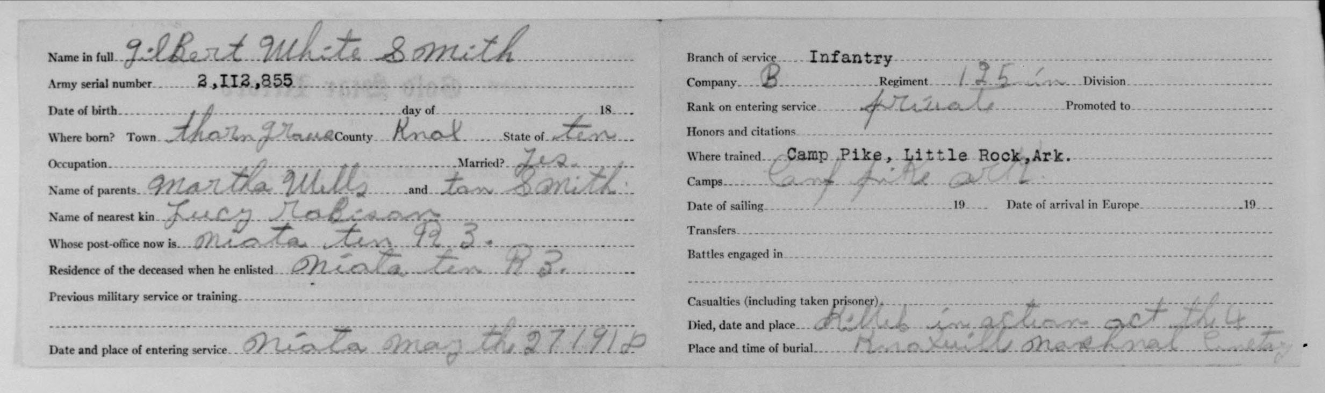 Name in full Gilbert White Smith
Army serial number 2,112,855
Date of birth day of 18
Where born? Town thorngrave County Knox State of ten
Occupation Married? Yes.
Name of parents Martha Wells and tan Smith
Name of nearest kin Lucy Robison
Whose post-office now is Niota ten R 3.
Residence of the deceased when he enlisted Niota ten R 3.
Previous military service or training
Date and place of entering service Niota may th 27 1918
Branch of service Infantry
Company B Regiment 125 in Division
Rank on entering service private Promoted to
Honors and citations
Where trained Camp Pike, Little Rock,Ark.
Camps Camp pike ark.
Date of sailing 19 Date of arrival in Europe 19
Transfers
Battles engaged in
Casualties (including taken prisoner)
Died, date and place Killed in action oct th 4
Place and time of burial Knoxvill nashnal